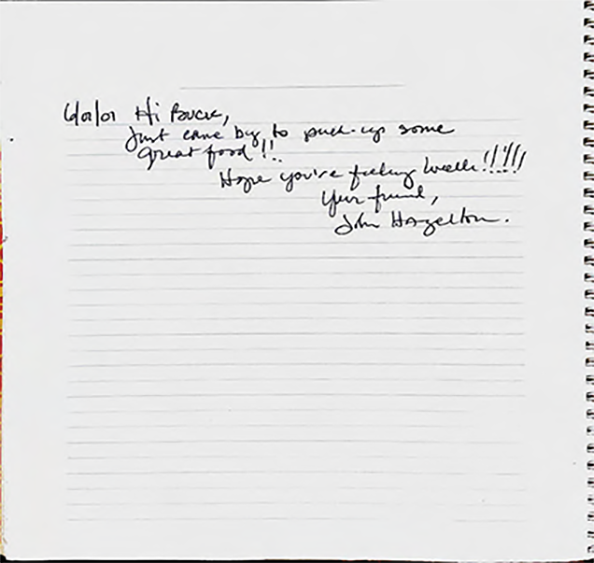 Hi
Just came by to pick-up some
great food!!..
Hope you're feeling well!!!!!!
Your friend,
John Hazelton.